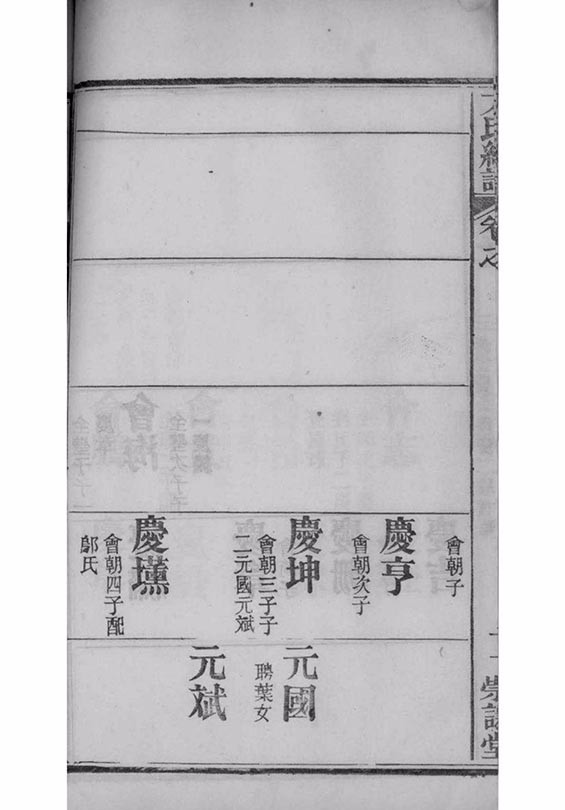 氏
卷之
崇
堂
會朝子
慶亨
會朝次子
慶坤
會朝三子子
二元國元斌
慶壎
會朝四子配
鄔氏
元國
聘葉女
元斌